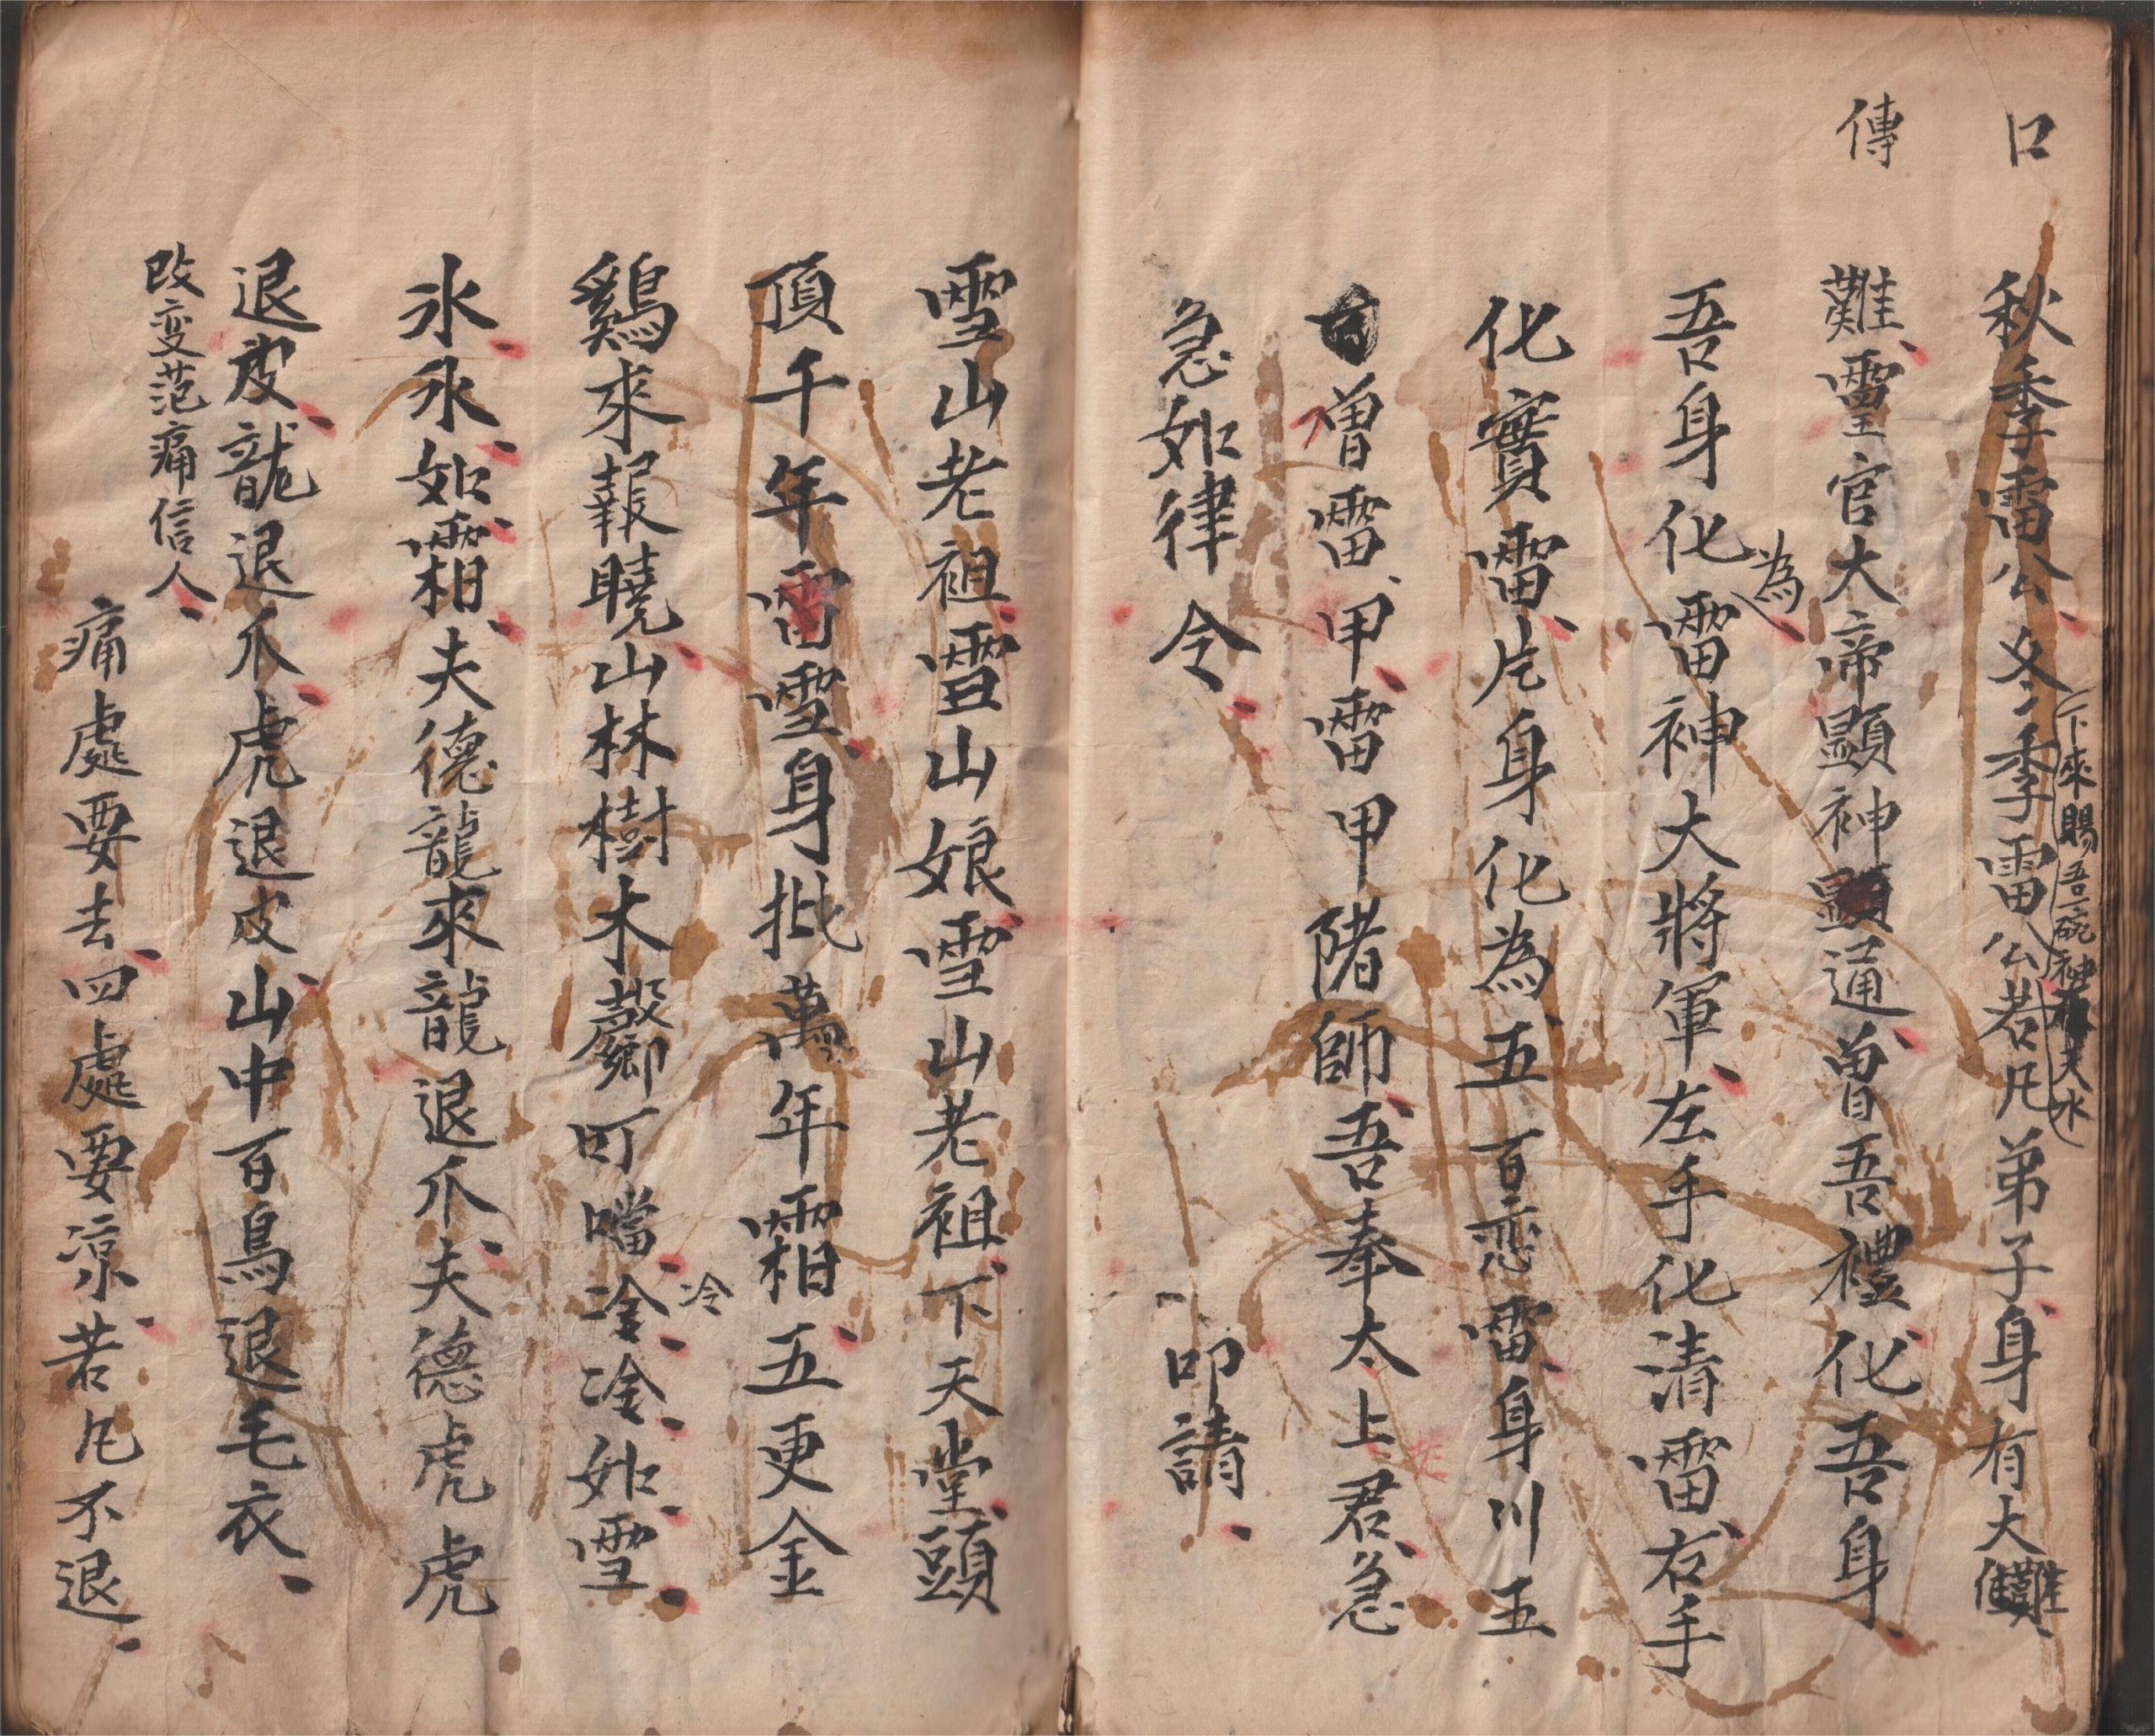 口傳
秋季雷公冬季雷公若凡弟子身有大難
下來賜吾一碗神天水
難靈官大帝顯神顯通曾吾禮化吾身
吾身化為雷神大將軍左手化清雷右手
化實雷片身化為五百恋雷身川五
曾雷甲雷甲陼師吾奉太上君急
急如律令 叩請
雪山老祖雪山娘雪山老祖下天堂頭
頂千年雷雪身批萬年霜五更金
鷄來報曉山林樹木叮噹冷冷如雪
冷
氷氷如霜夫德龍來龍退爪夫德虎虎
退皮龍退爪虎退皮山中百鳥退毛衣
改变范痛信人
痛處要去四處要涼若凡不退